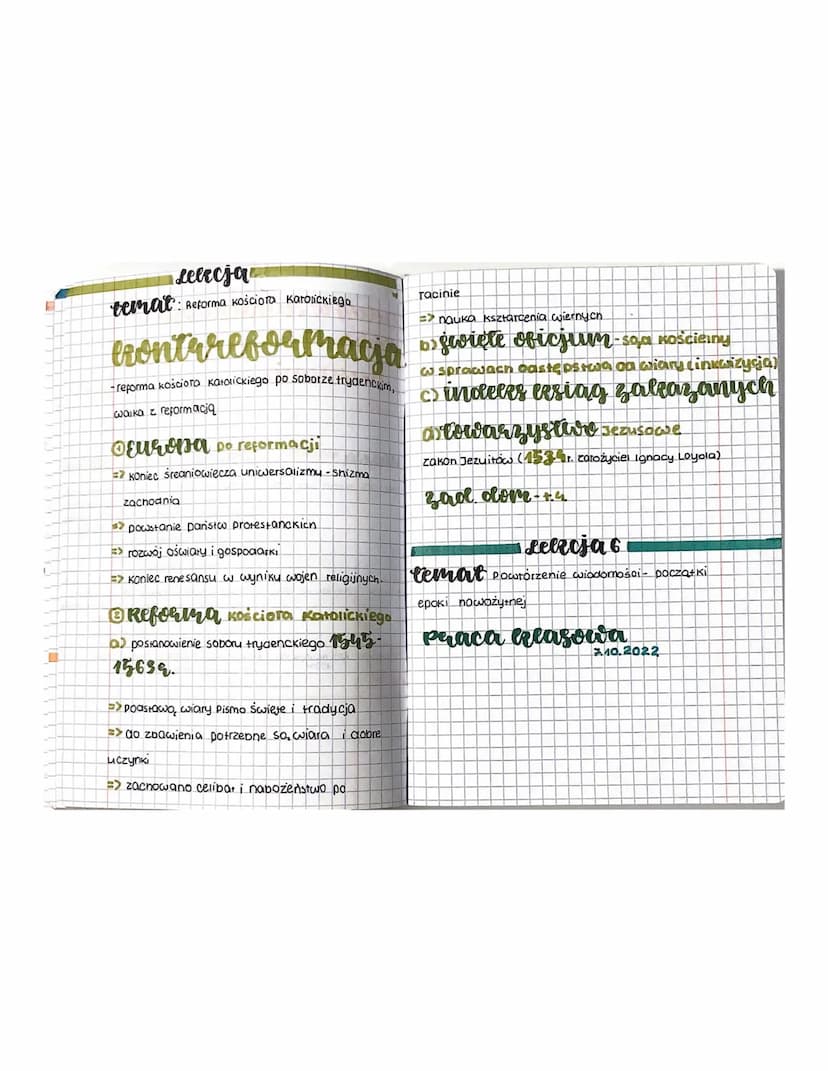 Lekcja
temat: Reforma kościoła Katolickiego
kontrreformacja
- reforma kościoła katolickiego po soborze trydenckim,
walka z reformacją
① EUROPA po reformacji
=> koniec średniowiecza uniwersalizmu - shizma
zachodnia
=> powstanie państw protestanckich
=> rozwój oświaty i gospodarki
=> koniec renesansu w wyniku wojen religijnych.
② Reforma kościoła katolickiego
a) postanowienie soboru trydenckiego 1545-
1563r.
=> podstawą wiary Pismo Święte i tradycja
=> do zbawienia potrzebne są wiara i dobre
uczynki
=> zachowano celibat i nabożeństwo po
łacinie
=> nauka kształcenia wiernych
b) święte oficjum - sąd kościelny
w sprawach odstępstwa od wiary (inkwizycja)
c) indeks ksiąg zakazanych
d) towarzystwo Jezusowe
zakon Jezuitów (1534r. założyciel Ignacy Loyola)
zad. dom - t.4
Lekcja 6
temat Powtórzenie wiadomości - początki
epoki nowożytnej
Praca klasowa
7.10.2022